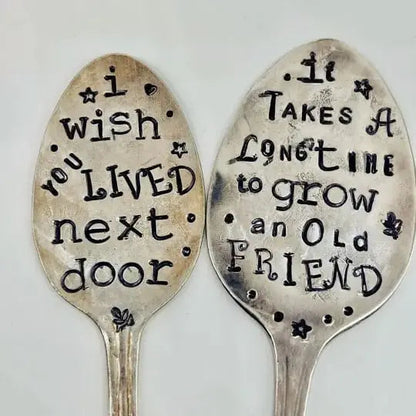 i
wish
YOU LIVED
next
door
it
TAKES A
LONG TIME
to grow
an OLd
FRIEND